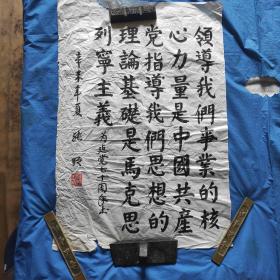 領導我們事業的核
心力量是中國共產
黨指導我們思想的
理論基礎是馬克思
列寧主義
為建黨七十周年書
辛未年夏